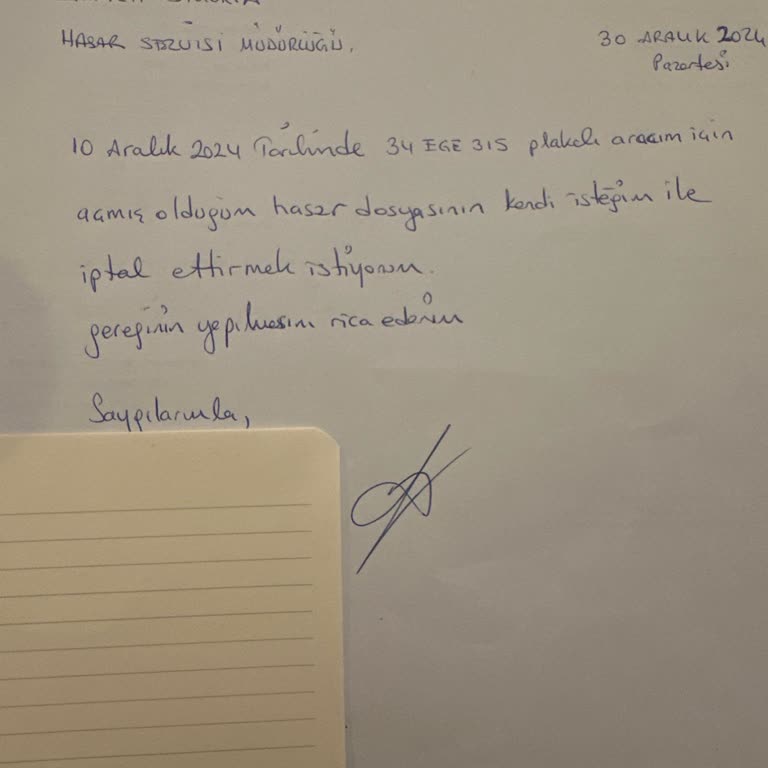 HASAR SERVİSİ MÜDÜRLÜĞÜ,
30 ARALIK 2024
Pazartesi
10 Aralık 2024 Tarihinde 34 EGE 315 plakalı aracım için
açmış olduğum hasar dosyasının kendi isteğim ile
iptal ettirmek istiyorum.
gereğinin yapılmasını rica ederim
Saygılarımla,